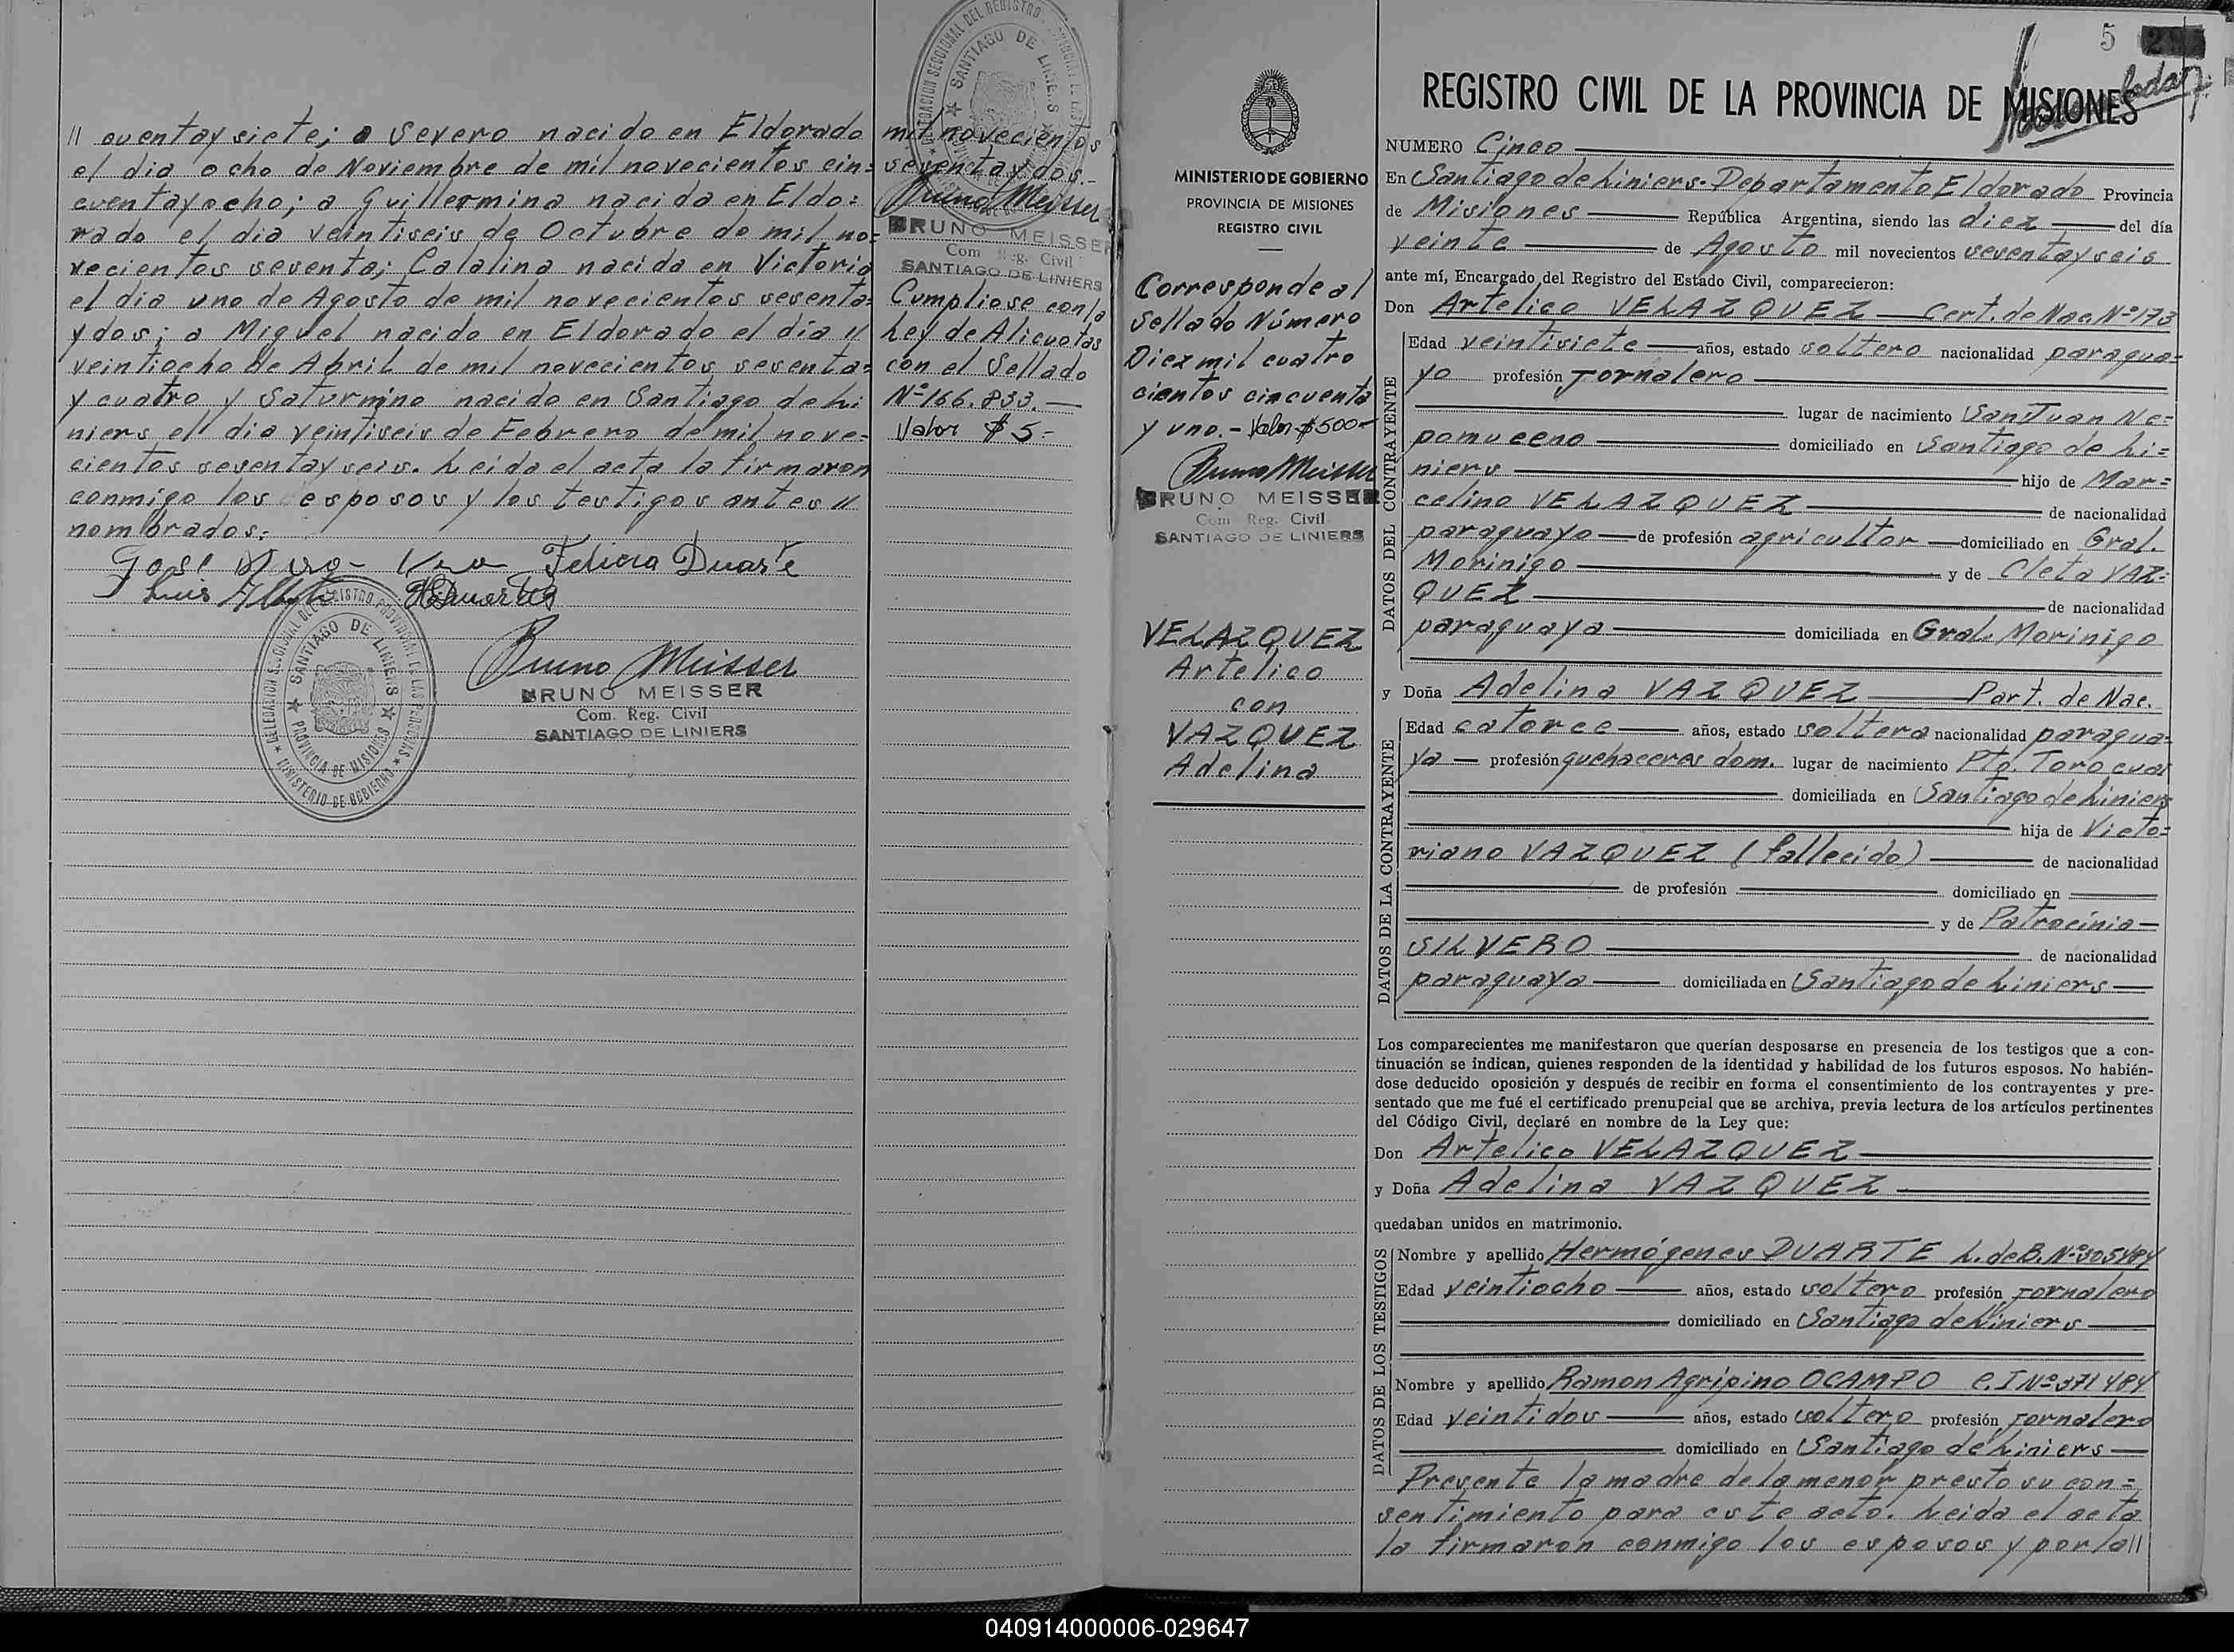 // cuentaysiete; a Severo nacido en Eldorado
el dia ocho de Noviembre de mil novecientos cin=
cuentayocho; a Guillermina nacida en Eldo=
rado el dia veintiseis de Octubre de mil no=
vecientos sesenta; Catalina nacida en Victoria
el dia uno de Agosto de mil novecientos sesenta=
ydos; a Miguel nacido en Eldorado el día //
veintiocho de Abril de mil novecientos sesenta=
y cuatro y Saturnino nacido en Santiago de Li
niers el dia veintiseis de Febrero de mil nove=
cientos sesentayseis. Leida el acta la firmaron
conmigo los esposos y los testigos antes //
nombrados:
Felicia Duarte
Luis
Bruno Meisser
BRUNO MEISSER
Com. Reg. Civil
SANTIAGO DE LINIERS
DELEGACION SECCIONAL DEL REGISTRO PROVINCIAL DE LAS PERSONAS
SANTIAGO DE LINIERS
PROVINCIA DE MISIONES
MINISTERIO DE GOBIERNO
DELEGACION SECCIONAL DEL REGISTRO
SANTIAGO DE LINIERS
mil novecientos
sesentaydos.-
Bruno Meisser
BRUNO MEISSER
Com Reg. Civil
SANTIAGO DE LINIERS
Cumpliose con la
Ley de Alicuotas
con el Sellado
Nº 166.833.—
Valor $ 5.-
MINISTERIO DE GOBIERNO
PROVINCIA DE MISIONES
REGISTRO CIVIL
Corresponde al
Sellado Número
Diez mil cuatro
cientos cincuenta
y uno.- Valor $500-
Bruno Meisser
BRUNO MEISSER
Com Reg. Civil
SANTIAGO DE LINIERS
VELAZQUEZ
Artelico
con
VAZQUEZ
Adelina
5
REGISTRO CIVIL DE LA PROVINCIA DE MISIONES
NUMERO Cinco
En Santiago de Liniers-Departamento Eldorado Provincia
de Misiones República Argentina, siendo las diez del día
veinte de Agosto mil novecientos sesentayseis
ante mí, Encargado del Registro del Estado Civil, comparecieron:
Don Artelico VELAZQUEZ — Cert. de Nac. Nº 173
DATOS DEL CONTRAYENTE
Edad veintisiete años, estado soltero nacionalidad paragua=
yo profesión Jornalero
lugar de nacimiento San Juan Ne=
pomuceno domiciliado en Santiago de Li=
niers hijo de Mar=
celino VELAZQUEZ de nacionalidad
paraguayo de profesión agricultor domiciliado en Gral.
Morinigo y de Cleta VAZ=
QUEZ de nacionalidad
paraguaya domiciliada en Gral. Morinigo
y Doña Adelina VAZQUEZ — Part. de Nac.
DATOS DE LA CONTRAYENTE
Edad catorce años, estado soltera nacionalidad paragua=
ya profesión quehaceres dom. lugar de nacimiento Pto. Torocuai
domiciliada en Santiago de Liniers
hija de Victo=
riano VAZQUEZ (fallecido) de nacionalidad
de profesión domiciliado en
y de Patrocinia—
SILVERO de nacionalidad
paraguaya domiciliada en Santiago de Liniers—
Los comparecientes me manifestaron que querían desposarse en presencia de los testigos que a con-
tinuación se indican, quienes responden de la identidad y habilidad de los futuros esposos. No habién-
dose deducido oposición y después de recibir en forma el consentimiento de los contrayentes y pre-
sentado que me fué el certificado prenupcial que se archiva, previa lectura de los artículos pertinentes
del Código Civil, declaré en nombre de la Ley que:
Don Artelico VELAZQUEZ
y Doña Adelina VAZQUEZ
quedaban unidos en matrimonio.
DATOS DE LOS TESTIGOS
Nombre y apellido Hermógenes DUARTE L. de B. Nº 305484
Edad veintiocho años, estado soltero profesión Jornalero
domiciliado en Santiago de Liniers
Nombre y apellido Ramon Agripino OCAMPO C. I Nº 371484
Edad veintidos años, estado soltero profesión Jornalero
domiciliado en Santiago de Liniers
Presente la madre de la menor presto su con=
sentimiento para este acto. Leida el acta
la firmaron conmigo los esposos y por la //
040914000006-029647